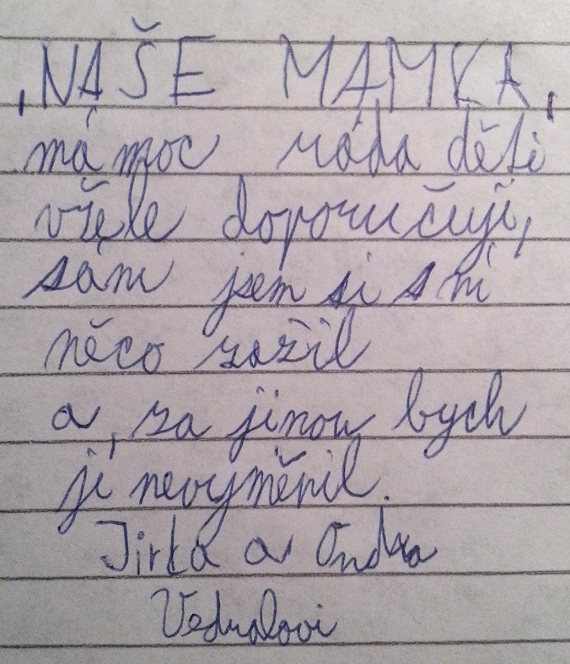 ,NAŠE MAMKA,
má moc ráda děti
vřele doporučuji,
sám jsem si s ní
něco zažil
a, za jinou bych
ji nevyměnil.
Jirka a Ondra
Vedralovi